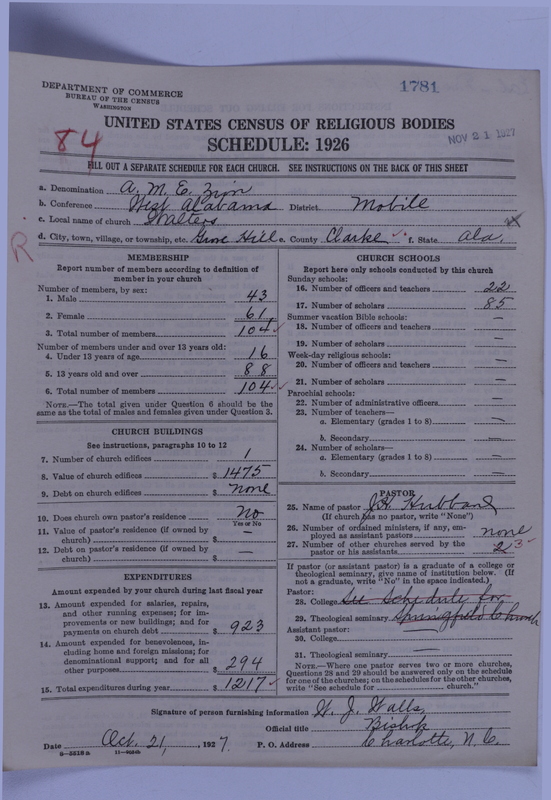 1781
DEPARTMENT OF COMMERCE
BUREAU OF THE CENSUS
WASHINGTON
UNITED STATES CENSUS OF RELIGIOUS BODIES
SCHEDULE: 1926
NOV 21 1927
84
FILL OUT A SEPARATE SCHEDULE FOR EACH CHURCH. SEE INSTRUCTIONS ON THE BACK OF THIS SHEET
a. Denomination A. M. E. Zion
b. Conference West Alabama District Mobile
c. Local name of church Walters
d. City, town, village, or township, etc. Grove Hill e. County Clarke f. State Ala.
R
MEMBERSHIP
Report number of members according to definition of member in your church
Number of members, by sex:
1. Male 43
2. Female 61
3. Total number of members 104
Number of members under and over 13 years old:
4. Under 13 years of age 16
5. 13 years old and over 88
6. Total number of members 104
NOTE.—The total given under Question 6 should be the same as the total of males and females given under Question 3.
CHURCH BUILDINGS
See instructions, paragraphs 10 to 12
7. Number of church edifices 1
8. Value of church edifices $ 1475
9. Debt on church edifices $ None
10. Does church own pastor's residence? No
Yes or No
11. Value of pastor's residence (if owned by church) $ —
12. Debt on pastor's residence (if owned by church) $ —
EXPENDITURES
Amount expended by your church during last fiscal year
13. Amount expended for salaries, repairs, and other running expenses; for improvements or new buildings; and for payments on church debt $ 923
14. Amount expended for benevolences, including home and foreign missions; for denominational support; and for all other purposes $ 294
15. Total expenditures during year $ 1217
CHURCH SCHOOLS
Report here only schools conducted by this church
Sunday schools:
16. Number of officers and teachers 22
17. Number of scholars 85
Summer vacation Bible schools:
18. Number of officers and teachers —
19. Number of scholars —
Week-day religious schools:
20. Number of officers and teachers —
21. Number of scholars —
Parochial schools:
22. Number of administrative officers —
23. Number of teachers—
a. Elementary (grades 1 to 8) —
b. Secondary —
24. Number of scholars—
a. Elementary (grades 1 to 8) —
b. Secondary —
PASTOR
25. Name of pastor J. H. Hubbard
(If church has no pastor, write "None")
26. Number of ordained ministers, if any, employed as assistant pastors none
27. Number of other churches served by the pastor or his assistants 2 3
If pastor (or assistant pastor) is a graduate of a college or theological seminary, give name of institution below. (If not a graduate, write "No" in the space indicated.)
Pastor:
28. College See Schedule for
29. Theological seminary Springfield Church
Assistant pastor:
30. College
31. Theological seminary —
NOTE.—Where one pastor serves two or more churches, Questions 28 and 29 should be answered only on the schedule for one of the churches; on the schedules for the other churches, write "See schedule for church."
Signature of person furnishing information W. J. Walls
Official title Bishop
Date Oct. 21, 1927. P. O. Address Charlotte, N. C.